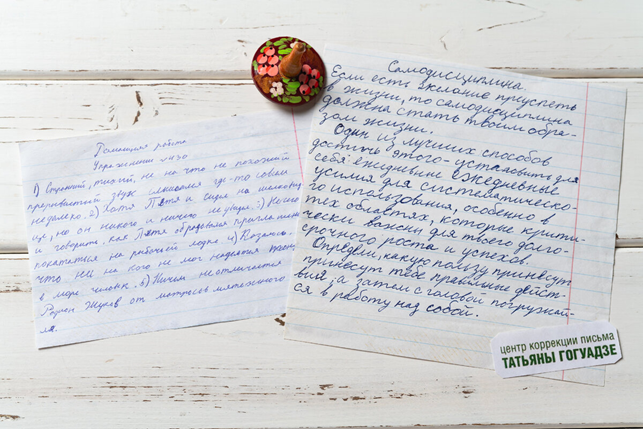 Домашняя работа
Упражнение
1) Странный, тихий, ни на что не похожий
звук слышался где-то совсем
недалеко. 2) Хотя Петя и сидел на
но он никого и ничего не увидел.
и говорить, как Петя обрадовался
покататься на рыбачьей лодке. 4) Казалось,
что ни на кого не мог надеяться
в мире человек. 5) Ничем не отличается
Родион Жуков от матросов мятежного
ля.
Самодисциплина
Если есть желание преуспеть
в жизни, то самодисциплина
должна стать твоим обра-
зом жизни.
Один из лучших способов
достичь этого - установить для
себя ежедневные
усилия для систематическо-
го использования, особенно в
тех областях, которые крити-
чески важны для твоего долго-
срочного роста и успехов.
Определи, какую пользу принесут
принесут тебе правильные дейст-
вия, а затем с головой погружай-
ся в работу над собой.
центр коррекции письма
ТАТЬЯНЫ ГОГУАДЗЕ